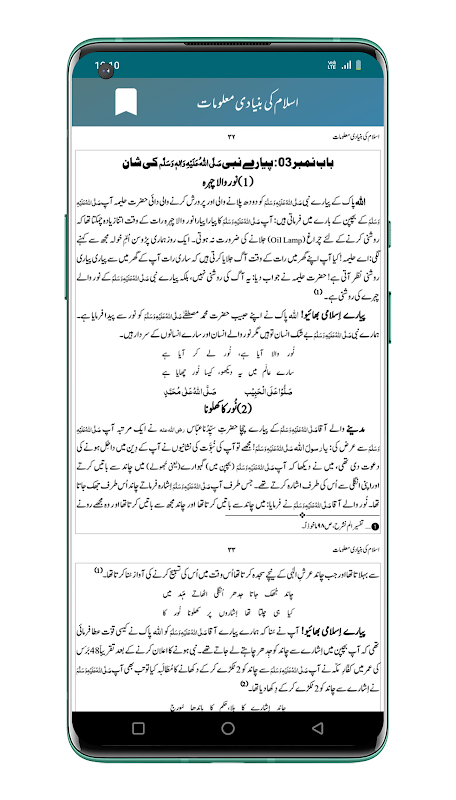 10:10
اسلام کی بنیادی معلومات
اسلام کی بنیادی معلومات ۳۲
باب نمبر 03: پیارے نبی صَلَّی اللہُ عَلَیْہِ وَاٰلِہٖ وَسَلَّم کی شان
(1) نور والا چہرہ
اللہ پاک کے پیارے نبی صَلَّی اللہُ عَلَیْہِ وَاٰلِہٖ وَسَلَّم کو دودھ پلانے والی اور پرورش کرنے والی دائی حضرت حلیمہ آپ صَلَّی اللہُ عَلَیْہِ وَاٰلِہٖ
وَسَلَّم کے بچپن کے بارے میں فرماتی ہیں: آپ صَلَّی اللہُ عَلَیْہِ وَاٰلِہٖ وَسَلَّم کا پیارا پیارا نور والا چہرہ رات کے وقت اتنا زیادہ چمکتا تھا کہ
روشنی کرنے کے لئے چراغ (Oil Lamp) جلانے کی ضرورت نہ ہوتی۔ ایک روز ہماری پڑوسن اُمِّ خولہ مجھ سے کہنے
لگی: اے حلیمہ! کیا آپ اپنے گھر میں رات کے وقت آگ جلایا کرتی ہیں کہ ساری رات آپ کے گھر میں سے پیاری پیاری
روشنی نظر آتی ہے! حضرت حلیمہ نے جواب دیا: یہ آگ کی روشنی نہیں، بلکہ پیارے نبی صَلَّی اللہُ عَلَیْہِ وَاٰلِہٖ وَسَلَّم کے نور والے
چہرے کی روشنی ہے۔ (1)
پیارے اِسلامی بھائیو! اللہ پاک نے اپنے حبیب حضرت محمد مصطفےٰ صَلَّی اللہُ عَلَیْہِ وَاٰلِہٖ وَسَلَّم کو نور سے پیدا فرمایا ہے۔
ہمارے نبی صَلَّی اللہُ عَلَیْہِ وَاٰلِہٖ وَسَلَّم بے شک انسان تو ہیں مگر نور والے انسان اور سارے انسانوں کے سردار ہیں۔
نُور والا آیا ہے، نُور لے کر آیا ہے
سارے عالَم میں یہ دیکھو، کیسا نُور چھایا ہے
صَلُّوْا عَلَی الْحَبِیْب صَلَّی اللہُ عَلٰی مُحَمَّد
(2) نُور کا کھلونا
مدینے والے آقا صَلَّی اللہُ عَلَیْہِ وَاٰلِہٖ وَسَلَّم کے پیارے چچا حضرتِ سیِّدُنا عبّاس رضی اللہ عنہ نے ایک مرتبہ آپ صَلَّی اللہُ عَلَیْہِ وَاٰلِہٖ
وَسَلَّم سے عرض کی: یا رسولَ اللہ صَلَّی اللہُ عَلَیْہِ وَاٰلِہٖ وَسَلَّم! مجھے تو آپ کی نُبُوَّت کی نشانیوں نے آپ کے دِین میں داخِل ہونے کی
دعوت دی تھی، میں نے دیکھا کہ آپ صَلَّی اللہُ عَلَیْہِ وَاٰلِہٖ وَسَلَّم (بچپن میں) گہوارے (یعنی جھولے) میں چاند سے باتیں کرتے
اور اپنی انگلی سے اُس کی طرف اشارہ کرتے تھے۔ جس طرف آپ صَلَّی اللہُ عَلَیْہِ وَاٰلِہٖ وَسَلَّم اِشارہ فرماتے چاند اُس طرف جھک جاتا
تھا۔ نُور والے آقا صَلَّی اللہُ عَلَیْہِ وَاٰلِہٖ وَسَلَّم نے فرمایا: میں چاند سے باتیں کرتا تھا اور چاند مجھ سے باتیں کرتا تھا اور وہ مجھے رونے
1 ... تفسیر الم نشرح، ص ۹۸ ماخوذاً۔
اسلام کی بنیادی معلومات ۳۳
سے بہلاتا تھا اور جب چاند عرشِ الٰہی کے نیچے سجدہ کرتا تھا اُس وقت میں اُس کی تسبیح کرنے کی آواز سُنا کرتا تھا۔ (1)
چاند جُھک جاتا جدھر اُنگلی اٹھاتے مَہد میں
کیا ہی چلتا تھا اِشاروں پر کھلونا نُور کا
پیارے اِسلامی بھائیو! آپ نے سُنا کہ ہمارے پیارے آقا صَلَّی اللہُ عَلَیْہِ وَاٰلِہٖ وَسَلَّم کو اللہ پاک نے کیسی قوّت عطا فرمائی
تھی کہ آپ بچپن میں اشارے سے چاند کو جدھر چاہتے لے جاتے تھے۔ نبی ہونے کا اعلان کرنے کے بعد تقریباً 48 برس
کی عمر میں کفّارِ مکّہ نے آپ صَلَّی اللہُ عَلَیْہِ وَاٰلِہٖ وَسَلَّم سے چاند کو 2 ٹکڑے کر کے دکھانے کا مُطالَبہ کیا تو تب بھی آپ صَلَّی اللہُ عَلَیْہِ وَاٰلِہٖ وَسَلَّم
نے اِشارے سے چاند کو 2 ٹکڑے کر کے دکھا دیا تھا۔ (2)
چاند اِشارے کا ہِلا، حکم کا باندھا سورج